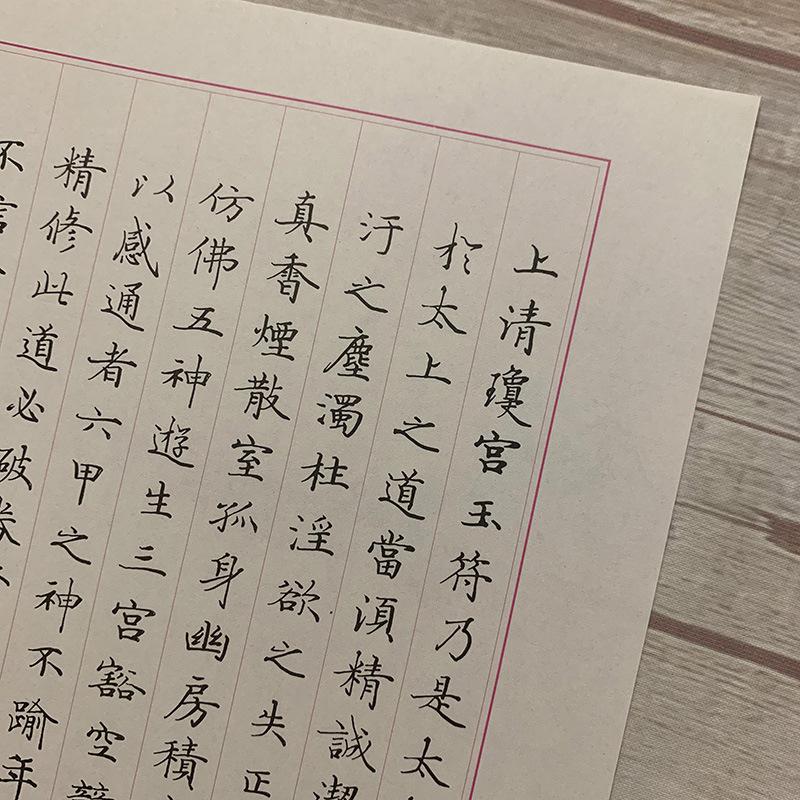 上清瓊宮玉符乃是太
於太上之道當湏精誠潔
汙之塵濁杜淫欲之失正
真香煙散室孤身幽房積
仿佛五神遊生三宮豁空
以感通者六甲之神不踰年
精修此道必破券
不言